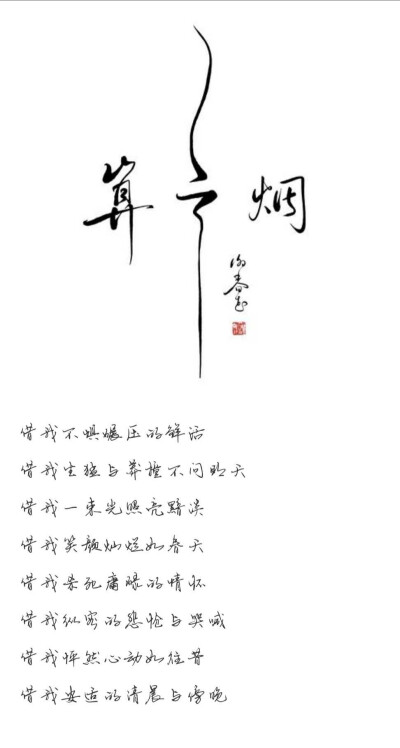 算云烟
谢春花
借我不惧碾压的鲜活
借我生猛与莽撞不问明天
借我一束光照亮黯淡
借我笑颜灿烂如春天
借我杀死庸碌的情怀
借我纵容的悲怆与哭喊
借我怦然心动如往昔
借我安适的清晨与傍晚